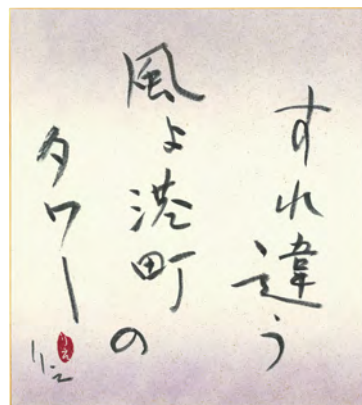 すれ違う
風よ港町の
タワー
りえ